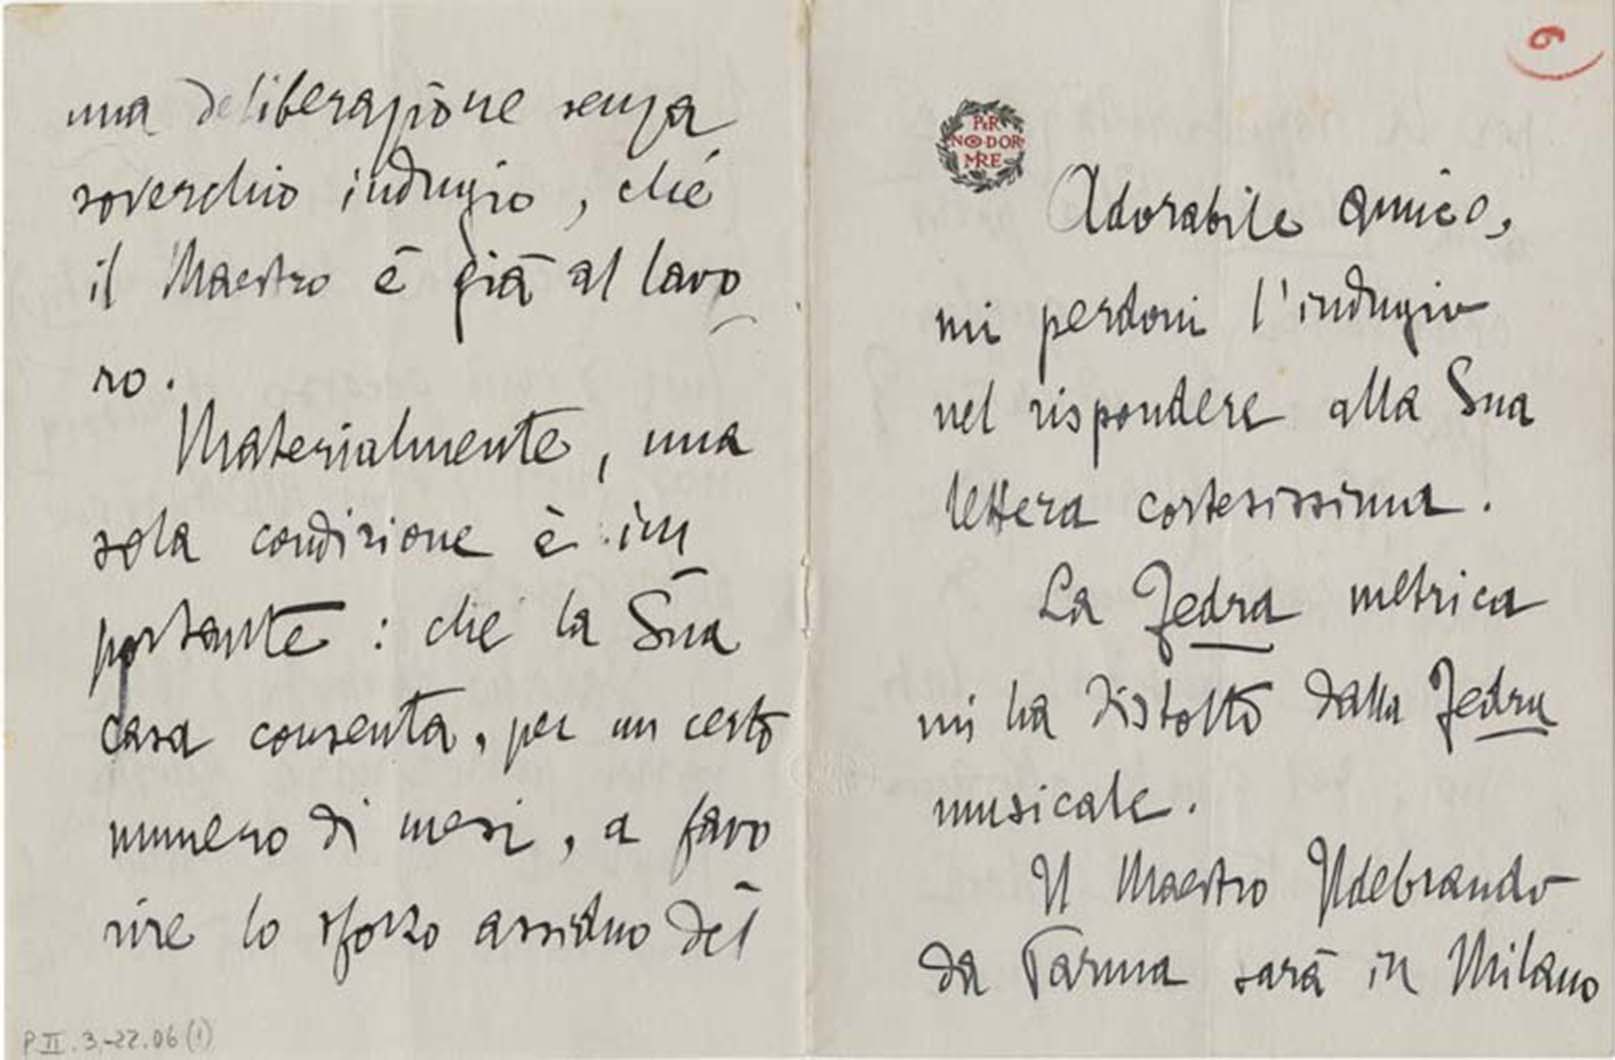 una deliberazione senza
soverchio indugio, ché
il Maestro è già al lavo
ro.
Materialmente, una
sola condizione è im
portante: che la Sua
casa consenta, per un certo
numero di mesi, a favo
rire lo sforzo assiduo del
P.II.3.-22.06 (1)
6
PER
NON DOR
MIRE
Adorabile amico,
mi perdoni l'indugio
nel rispondere alla Sua
lettera cortesissima.
La Fedra metrica
mi ha distolto dalla Fedra
musicale.
Il Maestro Ildebrando
da Parma sarà in Milano